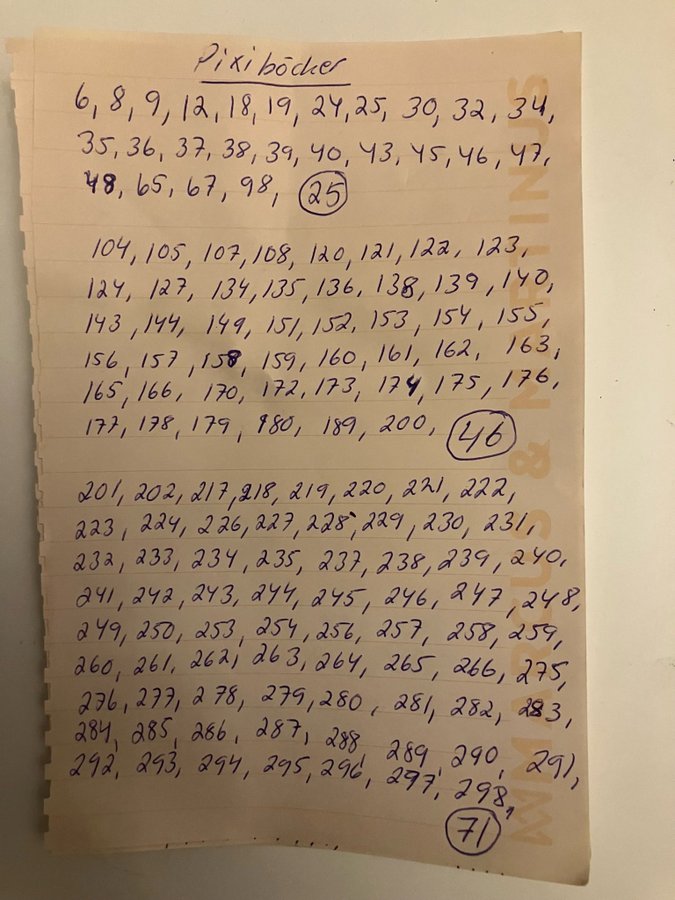 Pixiböcker
6, 8, 9, 12, 18, 19, 24, 25, 30, 32, 34,
35, 36, 37, 38, 39, 40, 43, 45, 46, 47,
48, 65, 67, 98, 25
104, 105, 107, 108, 120, 121, 122, 123,
124, 127, 134, 135, 136, 138, 139, 140,
143, 144, 149, 151, 152, 153, 154, 155,
156, 157, 158, 159, 160, 161, 162, 163,
165, 166, 170, 172, 173, 174, 175, 176,
177, 178, 179, 180, 189, 200, 46
201, 202, 217, 218, 219, 220, 221, 222,
223, 224, 226, 227, 228, 229, 230, 231,
232, 233, 234, 235, 237, 238, 239, 240,
241, 242, 243, 244, 245, 246, 247, 248,
249, 250, 253, 254, 256, 257, 258, 259,
260, 261, 262, 263, 264, 265, 266, 275,
276, 277, 278, 279, 280, 281, 282, 283,
284, 285, 286, 287, 288, 289, 290, 291,
292, 293, 294, 295, 296, 297, 298,
71
MARCUS & MARTINUS